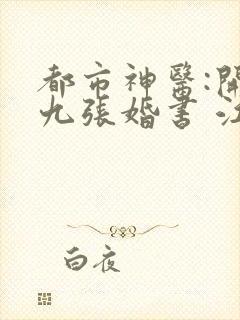 都市神醫:開
九張婚書 江
白夜